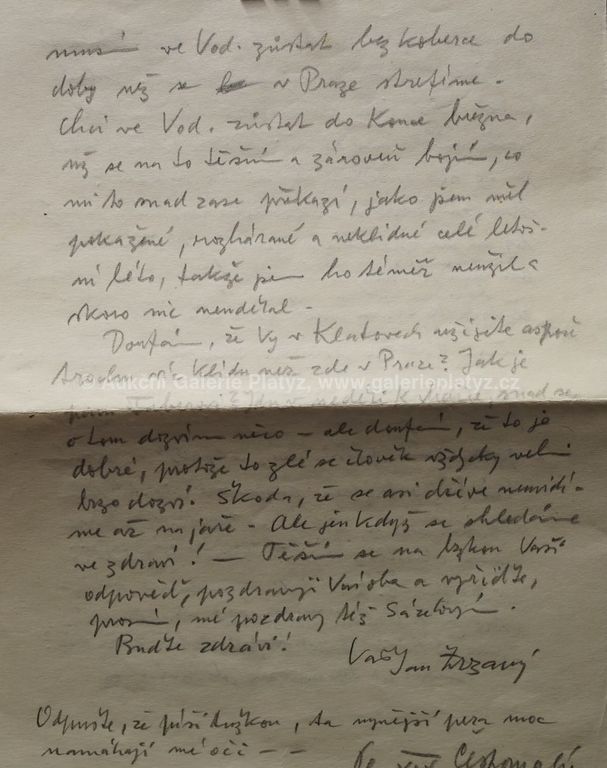 musí ve Vod. zůstat bez koberce do
doby než se v Praze strefíme.
Chci ve Vod. zůstat do konce března,
už se na to těším a zároveň bojím, co
mi to snad zase překazí, jako jsem měl
pokažené, rozhárané a neklidné celé letoš-
ní léto, takže jsem ho téměř neužil a
skoro nic neudělal -
Doufám, že Vy v Klatovech užijete aspoň
trochu víc klidu než zde v Praze? Jak je
© Aukční Galerie Platýz, www.galerieplatyz.cz
v neděli k snad se
o tom dozvím něco - ale doufám, že to je
dobré, protože to zlé se člověk vždycky velmi
brzo dozví. Škoda, že se asi dříve neuvidí-
me až na jaře - Ale jen když se shledáme
ve zdraví! - Těším se na brzkou Vaši
odpověď, pozdravuji Vás oba a vyřiďte,
prosím, mé pozdravy též
Buďte zdrávi!
Váš Jan Zrzavý
Odpusťte, že píši tužkou, ta nynější pera moc
namáhají mé oči - -